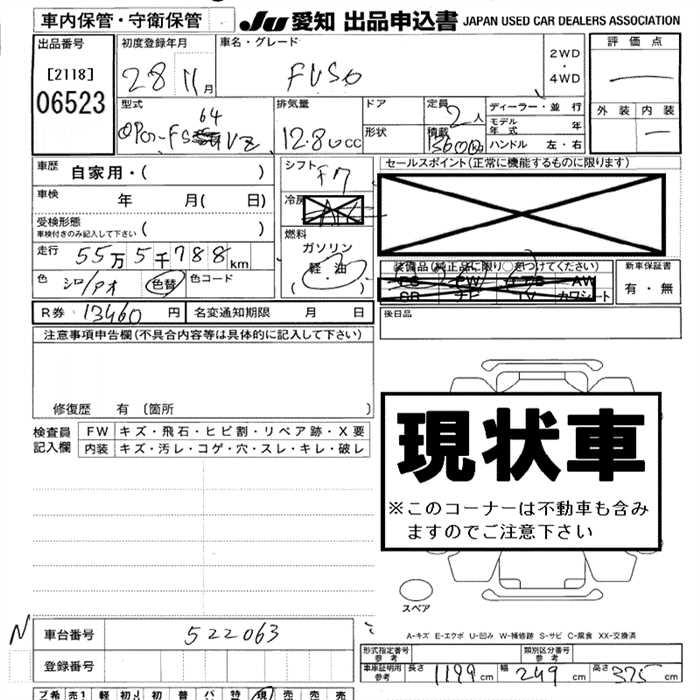 車内保管・守衛保管
JU 愛知 出品申込書 JAPAN USED CAR DEALERS ASSOCIATION
出品番号 初度登録年月 車名・グレード 2WD ・ 4WD 評価点
[2118] 28 11月 FUSO
06523
型式 排気量 ドア 定員 2人 ディーラー・並行 外装 内装
64 モデル年式 年
12.80cc 形状 積載 ハンドル 左・右
車歴 自家用・( ) シフト F7 セールスポイント(正常に機能するものに限ります)
車検 年 月( 日) 冷房
受検形態 ( ) 燃料
車検付きのみ記入して下さい ガソリン
走行 55万5千788km 軽・油 装備品(純正品に限り○をつけてください) 新車保証書
色 シロ/アオ 色替 色コード ( ・ ) 有・無
R券 13460円 名変通知期限 月 日 後日品
注意事項申告欄(不具合内容等は具体的に記入して下さい)
修復歴 有 〔箇所 〕
検査員 FW キズ・飛石・ヒビ割・リペア跡・X要
記入欄 内装 キズ・汚レ・コゲ・穴・スレ・キレ・破レ
現状車
※このコーナーは不動車も含み
ますのでご注意下さい
スペア
A-キズ E-エクボ U-凹み W-補修跡 S-サビ C-腐食 XX-交換済
N 車台番号 522063
登録番号
形式指定番号 参考 類別区分番号 参考
車庫証明用 参考 長さ 1199cm 幅 249cm 高さ 375cm